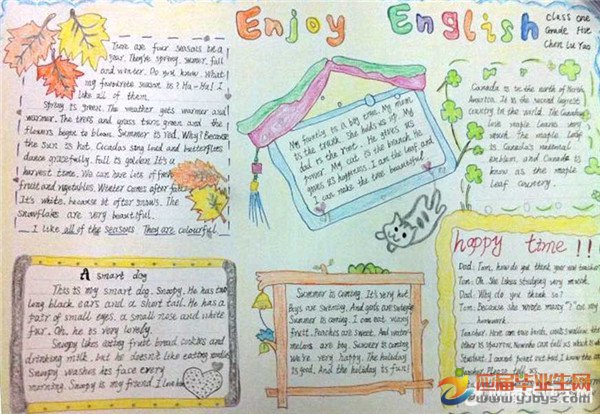 Enjoy English
Class one
Grade Five
Chen Lu Yao
There are four seasons in a
year. They're spring, summer, fall
and winter. Do you know What
my favourite season is? Ha-Ha! I
like all of them.
Spring is green. The weather gets warmer and
warmer. The trees and grass turn green and the
flowers begin to bloom. Summer is red. Why? Because
the Sun is hot. Cicadas sing loud and butterflies
dance gracefully. Fall is golden. It's a
harvest time. We can have lots of fresh
fruit and vegetables. Winter comes after fall.
It's white, because it often snows. The
snowflakes are very beautiful.
I like all of the seasons They are colourful.
My family is a big tree. My mum
is the trunk. She holds us up. My
dad is the root. He gives us
power. My cat is the branch. He
gives us happiness. I am the leaf and
I can make the tree beautiful.
Canada is in the north of North
America. It is the second largest
country in the world. The Canadians
like maple leaves very
much the maple leaf
is Canada's national
emblem, and Canada is
know as the maple
leaf country.
A smart dog
This is my smart dog, Snoopy. He has two
long black ears and a short tail. He has a
pair of small eyes, a small nose and white
fur. Oh, he is very lovely.
Snoopy likes eating fruit bread cookies and
drinking milk. but he doesn't like eating
Snoopy washes his face every
morning. Snoopy is my friend. I love him
Summer is coming. It's very hot.
Boys are swimming. And girls are
Summer is coming. I can eat many
fruit. Peaches are sweet. And water
melons are big. Summer is coming
we're very happy. The holiday
is good. And the holiday is fun!
happy time!!!
Dad: Tom, how do you think your new teacher
Tom: Oh, She likes studying very much.
Dad: Why do you think so?
Tom: Because she wrote many "?" on my
homework.
Teacher: Here are two birds, one's swallow the
other is sparrow. Now who can tell us which
Student: I cannot point out but I know the
Teacher: Please tell us.
届毕业生网
www.yjbys.com